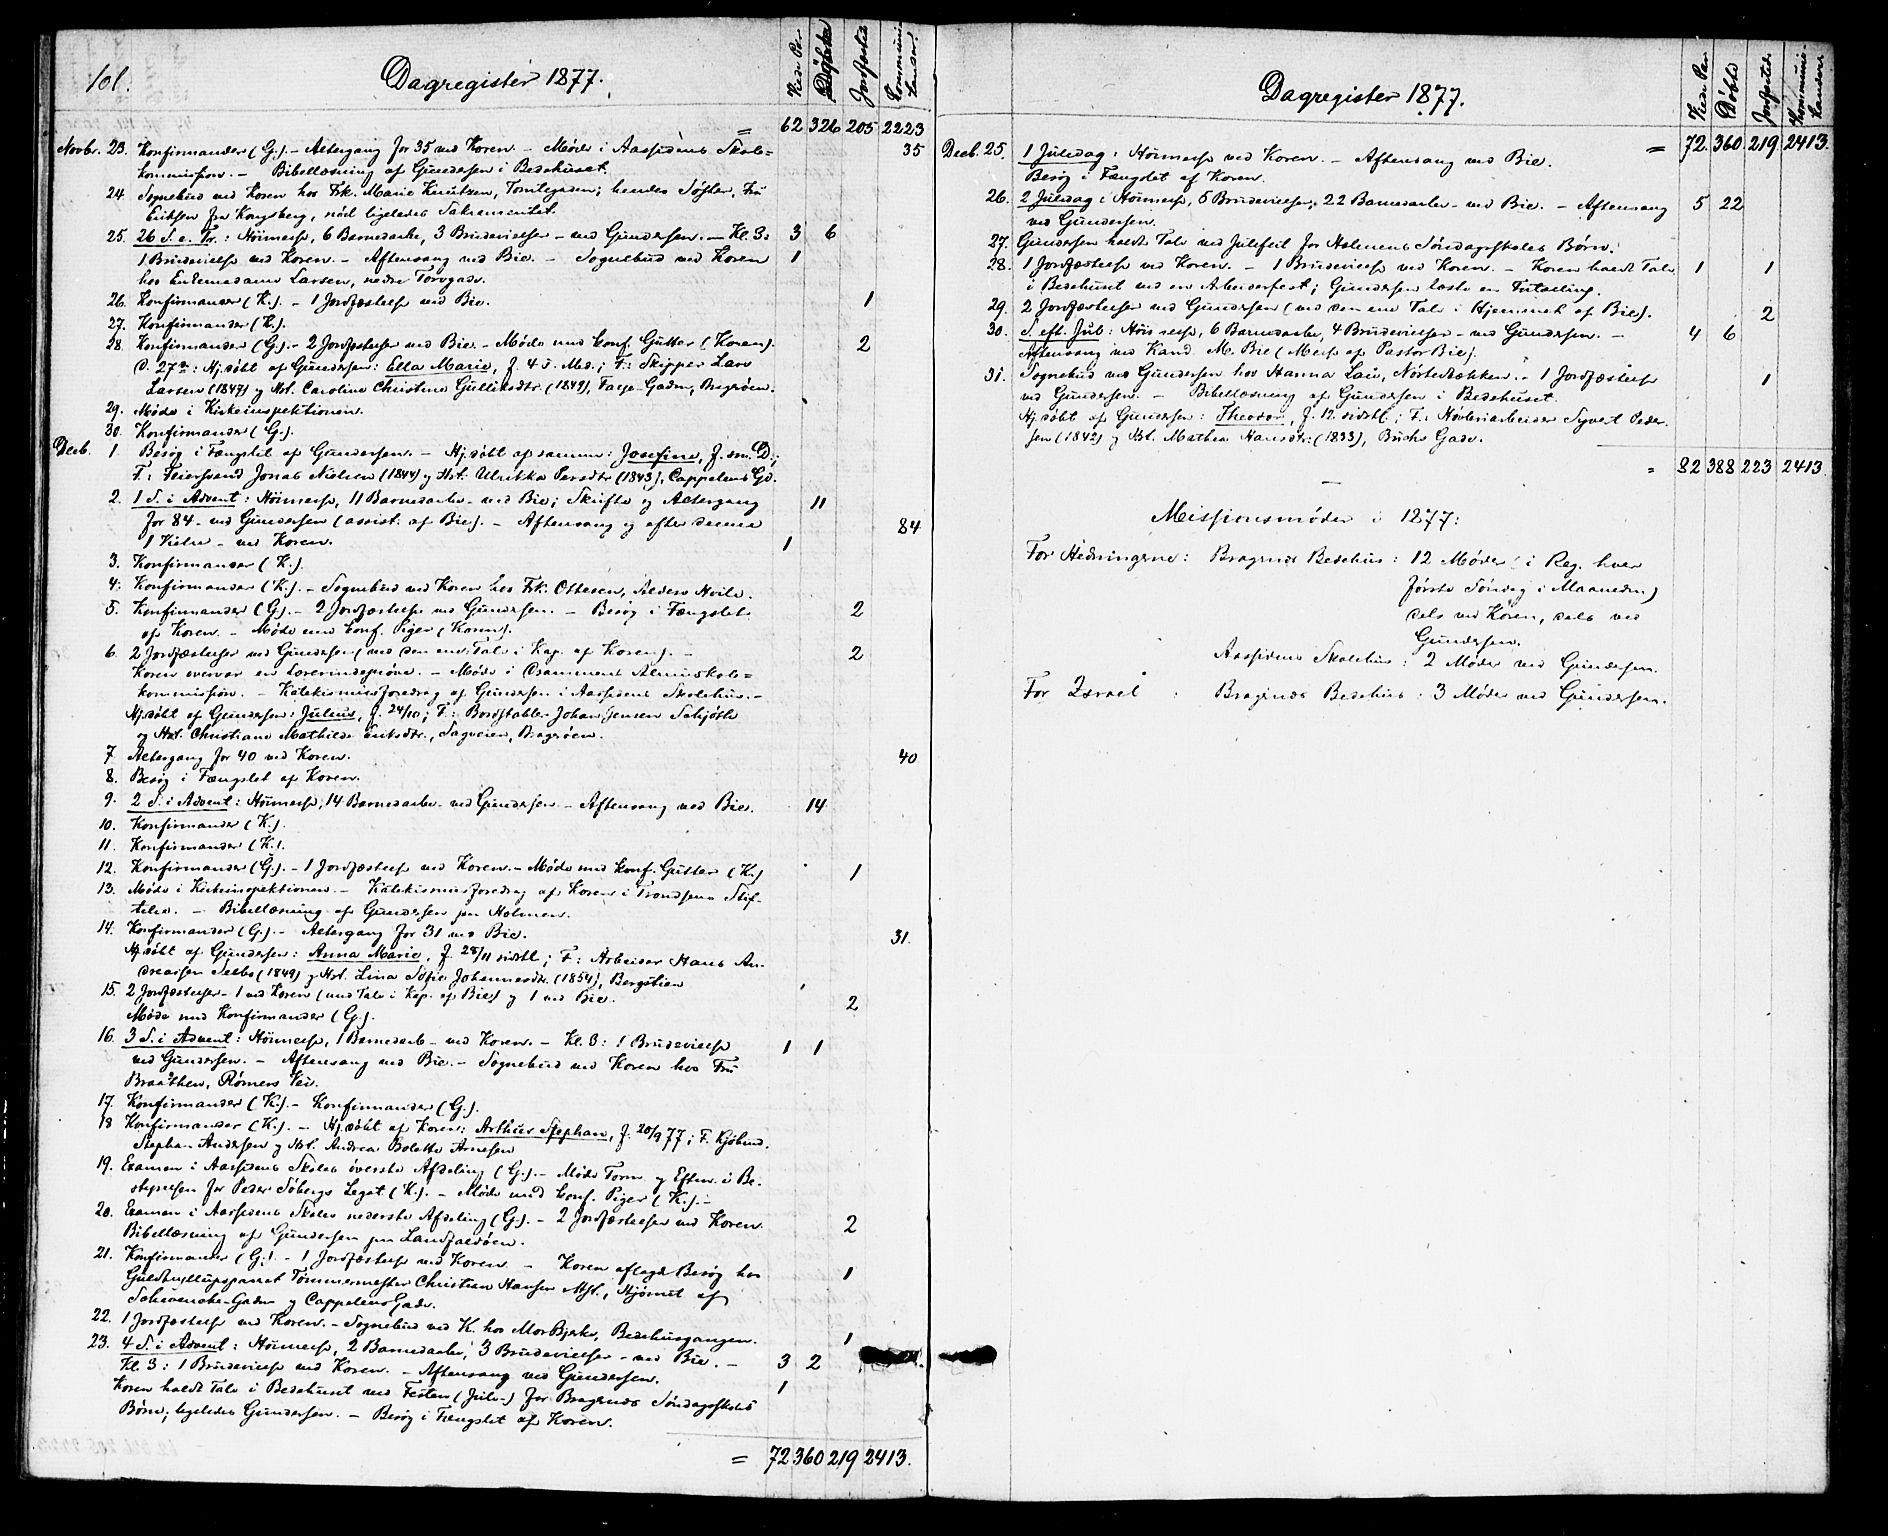 101.
Dagregister 1877.
Viede Par
Døbte
Jordfæstede
Kommunikanter.
= 62 326 205 2223
Novbr. 23. Konfirmander (G.). – Altergang for 35 ved Koren. – Møde i Aassidens Skole= 35
kommission. – Bibellæsning af Gundersen i Bedehuset.
24. Sognebud ved Koren hos Frk. Marie Knutzen, Tomtegaden; hendes Søster, Fru
Eriksen fra Kongsberg, nød ligeledes Sakramentet.
25. 26 S. e. Tr.: Höimesse, 6 Barnedaabe, 3 Brudevielser – ved Gundersen. – Kl. 3: 3 6
1 Brudevielse ved Koren. – Aftensang ved Bie. – Sognebud ved Koren 1
hos Enkemadame Larsen, nedre Torvgade.
26. Konfirmander (K.). – 1 Jordfæstelse ved Bie. 1
27. Konfirmander (K.).
28. Konfirmander (G.). – 2 Jordfæstelser ved Bie. – Møde med Konf. Gutter (Koren). 2
D. 27de: Hj.døbt af Gundersen: Ella Marie, f. 4 d. Md.; F.: Skipper Lars
Larsen (1847) og Hst. Caroline Christine Gulliksdtr (1849), Gaden, Bragerøen.
29. Møde i Kirkeinspektionen.
30. Konfirmander (G.).
Decb. 1 Besøg i Fængslet af Gundersen. – Hj.døbt af samme: Josefine, f. sm. D.;
F.: Feiersvend Jonas Nielsen (1844) og Hst. Ulrikka Persdtr (1843), Cappelens Gd.
2. 1 S. i Advent: Höimesse, 11 Barnedaabe – ved Bie; Skrifte og Altergang 11
for 84 – ved Gundersen (assist. af Bie). – Aftensang og efter denne 84
1 Vielse – ved Koren. 1
3. Konfirmander (K.).
4. Konfirmander (K.). – Sognebud ved Koren hos Frk. Ottesen, Alders Hvile.
5. Konfirmander (G.). – 2 Jordfæstelser ved Gundersen. – Besøg i Fængslet 2
af Koren. – Møde med Konf. Piger (Koren).
6. 2 Jordfæstelser ved Gundersen (ved den ene Tale i Kap. af Koren). – 2
Koren overvar en Lærerindeprøve. – Møde i Drammens Almuskole=
kommission. – Katekismusforedrag af Gundersen i Aassidens Skolehus. –
Hj.døbt af Gundersen: Julius, f. 24/10; F.: Bordstabler Johan Jensen Schjøtle
og Hst. Christiane Mathilde Eriksdtr., Sagveien, Bragerøen.
7 Altergang for 40 ved Koren. 40
8. Besøg i Fængslet af Koren.
9. 2 S. i Advent: Höimesse, 14 Barnedaabe – ved Gundersen – Aftensang ved Bie. 14
10. Konfirmander (K.).
11. Konfirmander (K.).
12. Konfirmander (G.). – 1 Jordfæstelse ved Koren. – Møde med Konf. Gutter (K.) 1
13. Møde i Kirkeinspektionen. – Katekismusforedrag af Koren i Trondsens Stif-
telse. – Bibellæsning af Gundersen paa Holmen.
14. Konfirmander (G.). – Altergang for 31 ved Bie. 31.
Hj.døbt af Gundersen: Anna Marie, f. 28/11 sidstl; F.: Arbeider Hans An-
dreassen Selbo (1849) og Hst. Lina Sofie Johannesdtr. (1854), Bergstien
15. 2 Jordfæstelser – 1 ved Koren (med Tale i Kap. af Bie) og 1 ved Bie. 2
Møde med Konfirmander (G.).
16. 3 S. i Advent: Höimesse, 1 Barnedaab – ved Koren. – Kl. 3: 1 Brudevielse 1 1
ved Gundersen. – Aftensang ved Bie. – Sognebud ved Koren hos Fru
Braathen, Rømers Vei.
17. Konfirmander (K.). – Konfirmander (G.).
18 Konfirmander (K.). – Hj.døbt af Koren: Arthur Stephan, f. 20/9 77; F. Kjøbmd.
Stephan Andersen og Hst. Andrea Bolette Arnesen
19. Examen i Aassidens Skoles överste Afdeling (G.). – Møde Form. og Efterm. i Be-
styrelsen for Peder Söbergs Legat (K.). – Møde med Konf. Piger (K.). –
20. Examen i Aassidens Skoles nederste Afdeling (G.). – 2 Jordfæstelser ved Koren. 2
Bibellæsning af Gundersen paa Landfaldöen.
21. Konfirmander (G.). – 1 Jordfæstelse ved Koren – Koren aflagde Besøg hos 1
Guldbryllupsparret Tømmermester Christian Hansen Hst., Hjørnet af
Schwencke-Gaden og Cappelens Gade.
22. 1 Jordfæstelse ved Koren. – Sognebud ved K. hos Mor Bjerke, Bedehusgangen. 1
23. 4 S. i Advent: Höimesse, 2 Barnedaabe, 3 Brudevielser – ved Bie. – 3 2
Kl. 3: 1 Brudevielse ved Koren. – Aftensang ved Gundersen. 1
Koren holdt Tale i Bedehuset ved Festen (Jule-) for Bragernes Søndagsskoles
Børn; ligeledes Gundersen. – Besøg i Fængslet af Koren.
= 72 360 219 2413.
Dagregister 1877.
Viede Par
Døbte
Jordfæstede
Kommunikanter
Decb. 25. 1 Juledag: Höimesse ved Koren. – Aftensang ved Bie. = 72. 360 219 2413.
Besøg i Fængslet af Koren.
26. 2 Juledag: Höimesse, 5 Brudevielser, 22 Barnedaabe – ved Bie. – Aftensang 5 22
ved Gundersen.
27. Gundersen holdt Tale ved Julefest for Holmens Söndagsskoles Børn.
28. 1 Jordfæstelse ved Koren. – 1 Brudevielse ved Koren. – Koren holdt Tale 1 1
i Bedehuset ved en Arbeiderfest; Gundersen læste en Fortælling.
29. 2 Jordfæstelser ved Gundersen (ved den ene Tale i Hjemmet af Bie). 2
30. S. eft. Jul: Höimesse, 6 Barnedaabe, 4 Brudevielser – ved Gundersen. – 4 6
Aftensang ved Kand. M. Bie (Messe af Pastor Bie).
31. Sognebud ved Gundersen hos Hanna Lau, Nöstedbækken. – 1 Jordfæstelse 1
ved Gundersen. – Bibellæsning af Gundersen i Bedehuset.
Hj.døbt af Gundersen: Theodor, f. 12. sidstl; F.: Hövleriarbeider Syvert Peder-
sen (1842) og Hst. Mathea Hansdtr. (1833), Buchs Gade.
= 82 388 223 2413
Missionsmøder i 1877:
For Hedningerne: Bragernes Bedehus: 12 Møder (i Reg. hver
förste Söndag i Maaneden)
dels ved Koren, dels ved
Gundersen.
Aassidens Skolehus: 2 Møder ved Gundersen.
For Israel : Bragernes Bedehus: 3 Møder ved Gundersen.